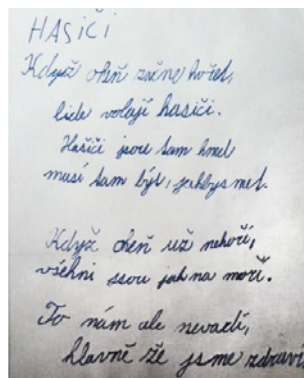 HASIČI
Když oheň začne hořet,
lidé volají hasiči.
Hasiči jsou tam hned
musí tam být, jakbysmet.
Když oheň už nehoří,
všichni jsou jak na moři.
To nám ale nevadí,
hlavně že jsme zdraví